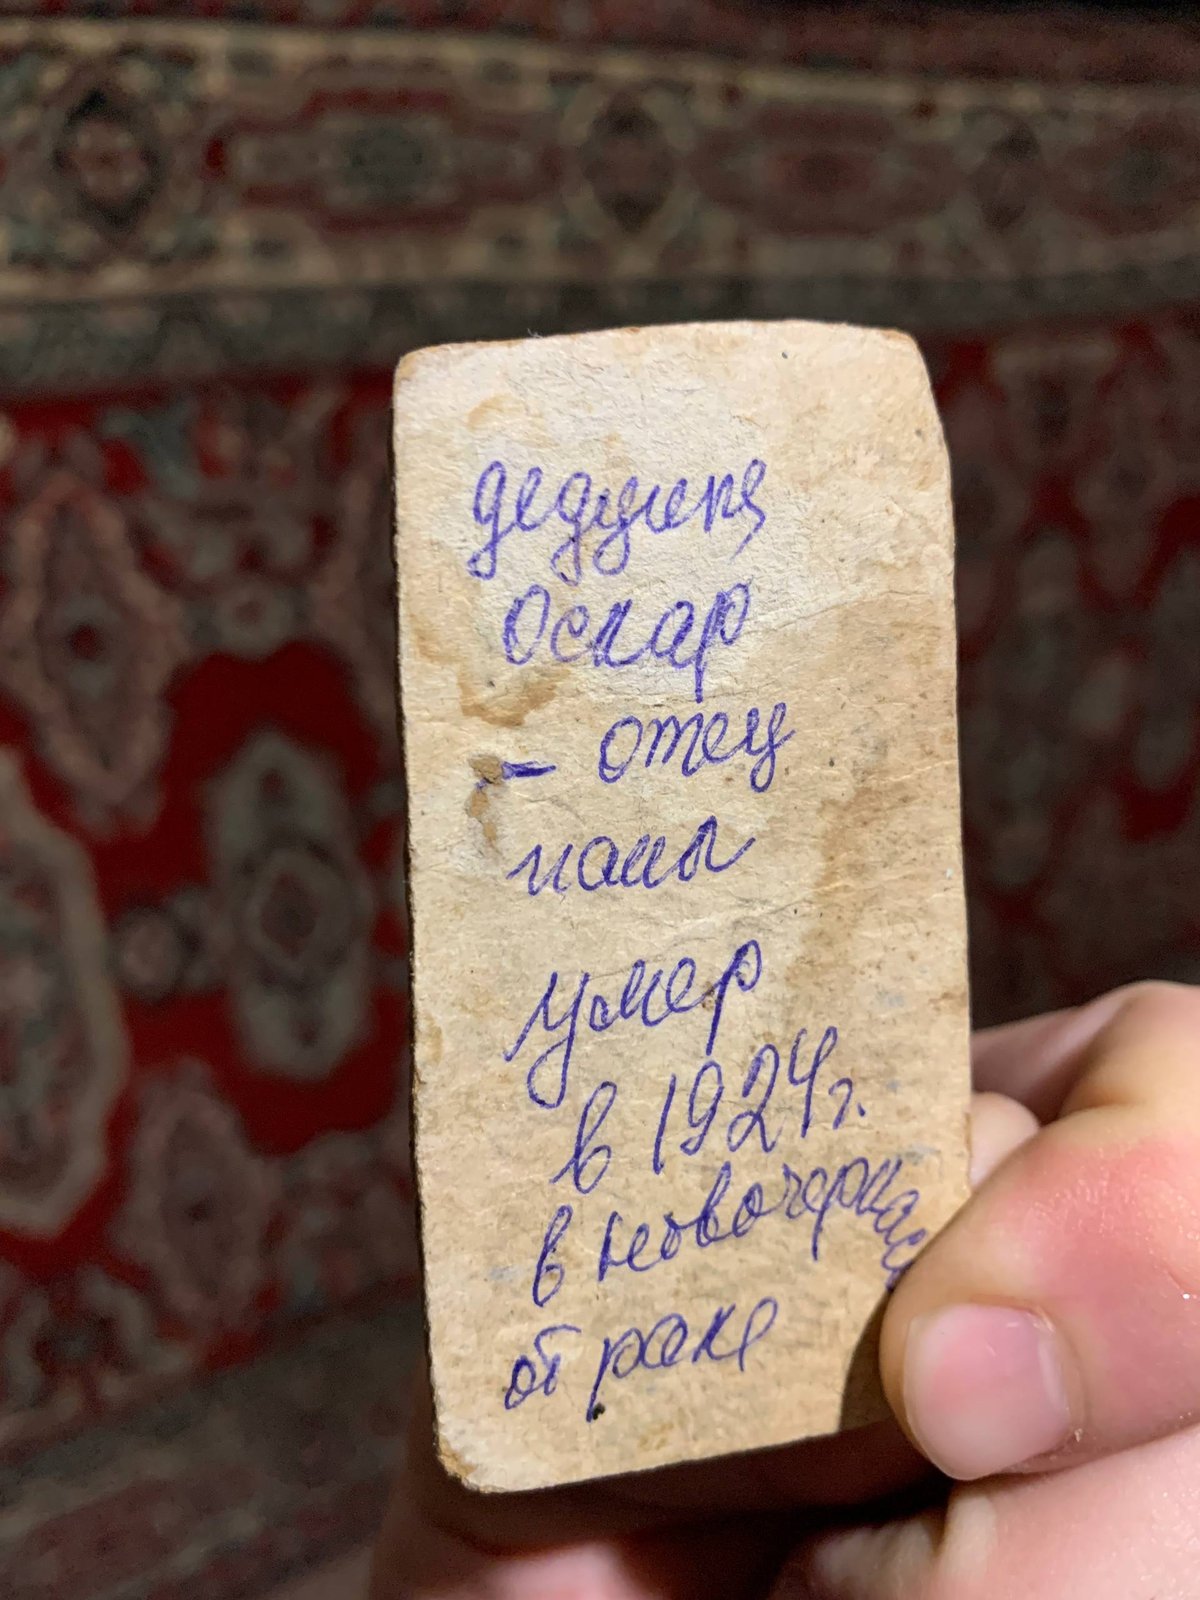 дедушка
Оскар
- отец
мамы
умер
в 1924г.
в Новочеркас
от рака